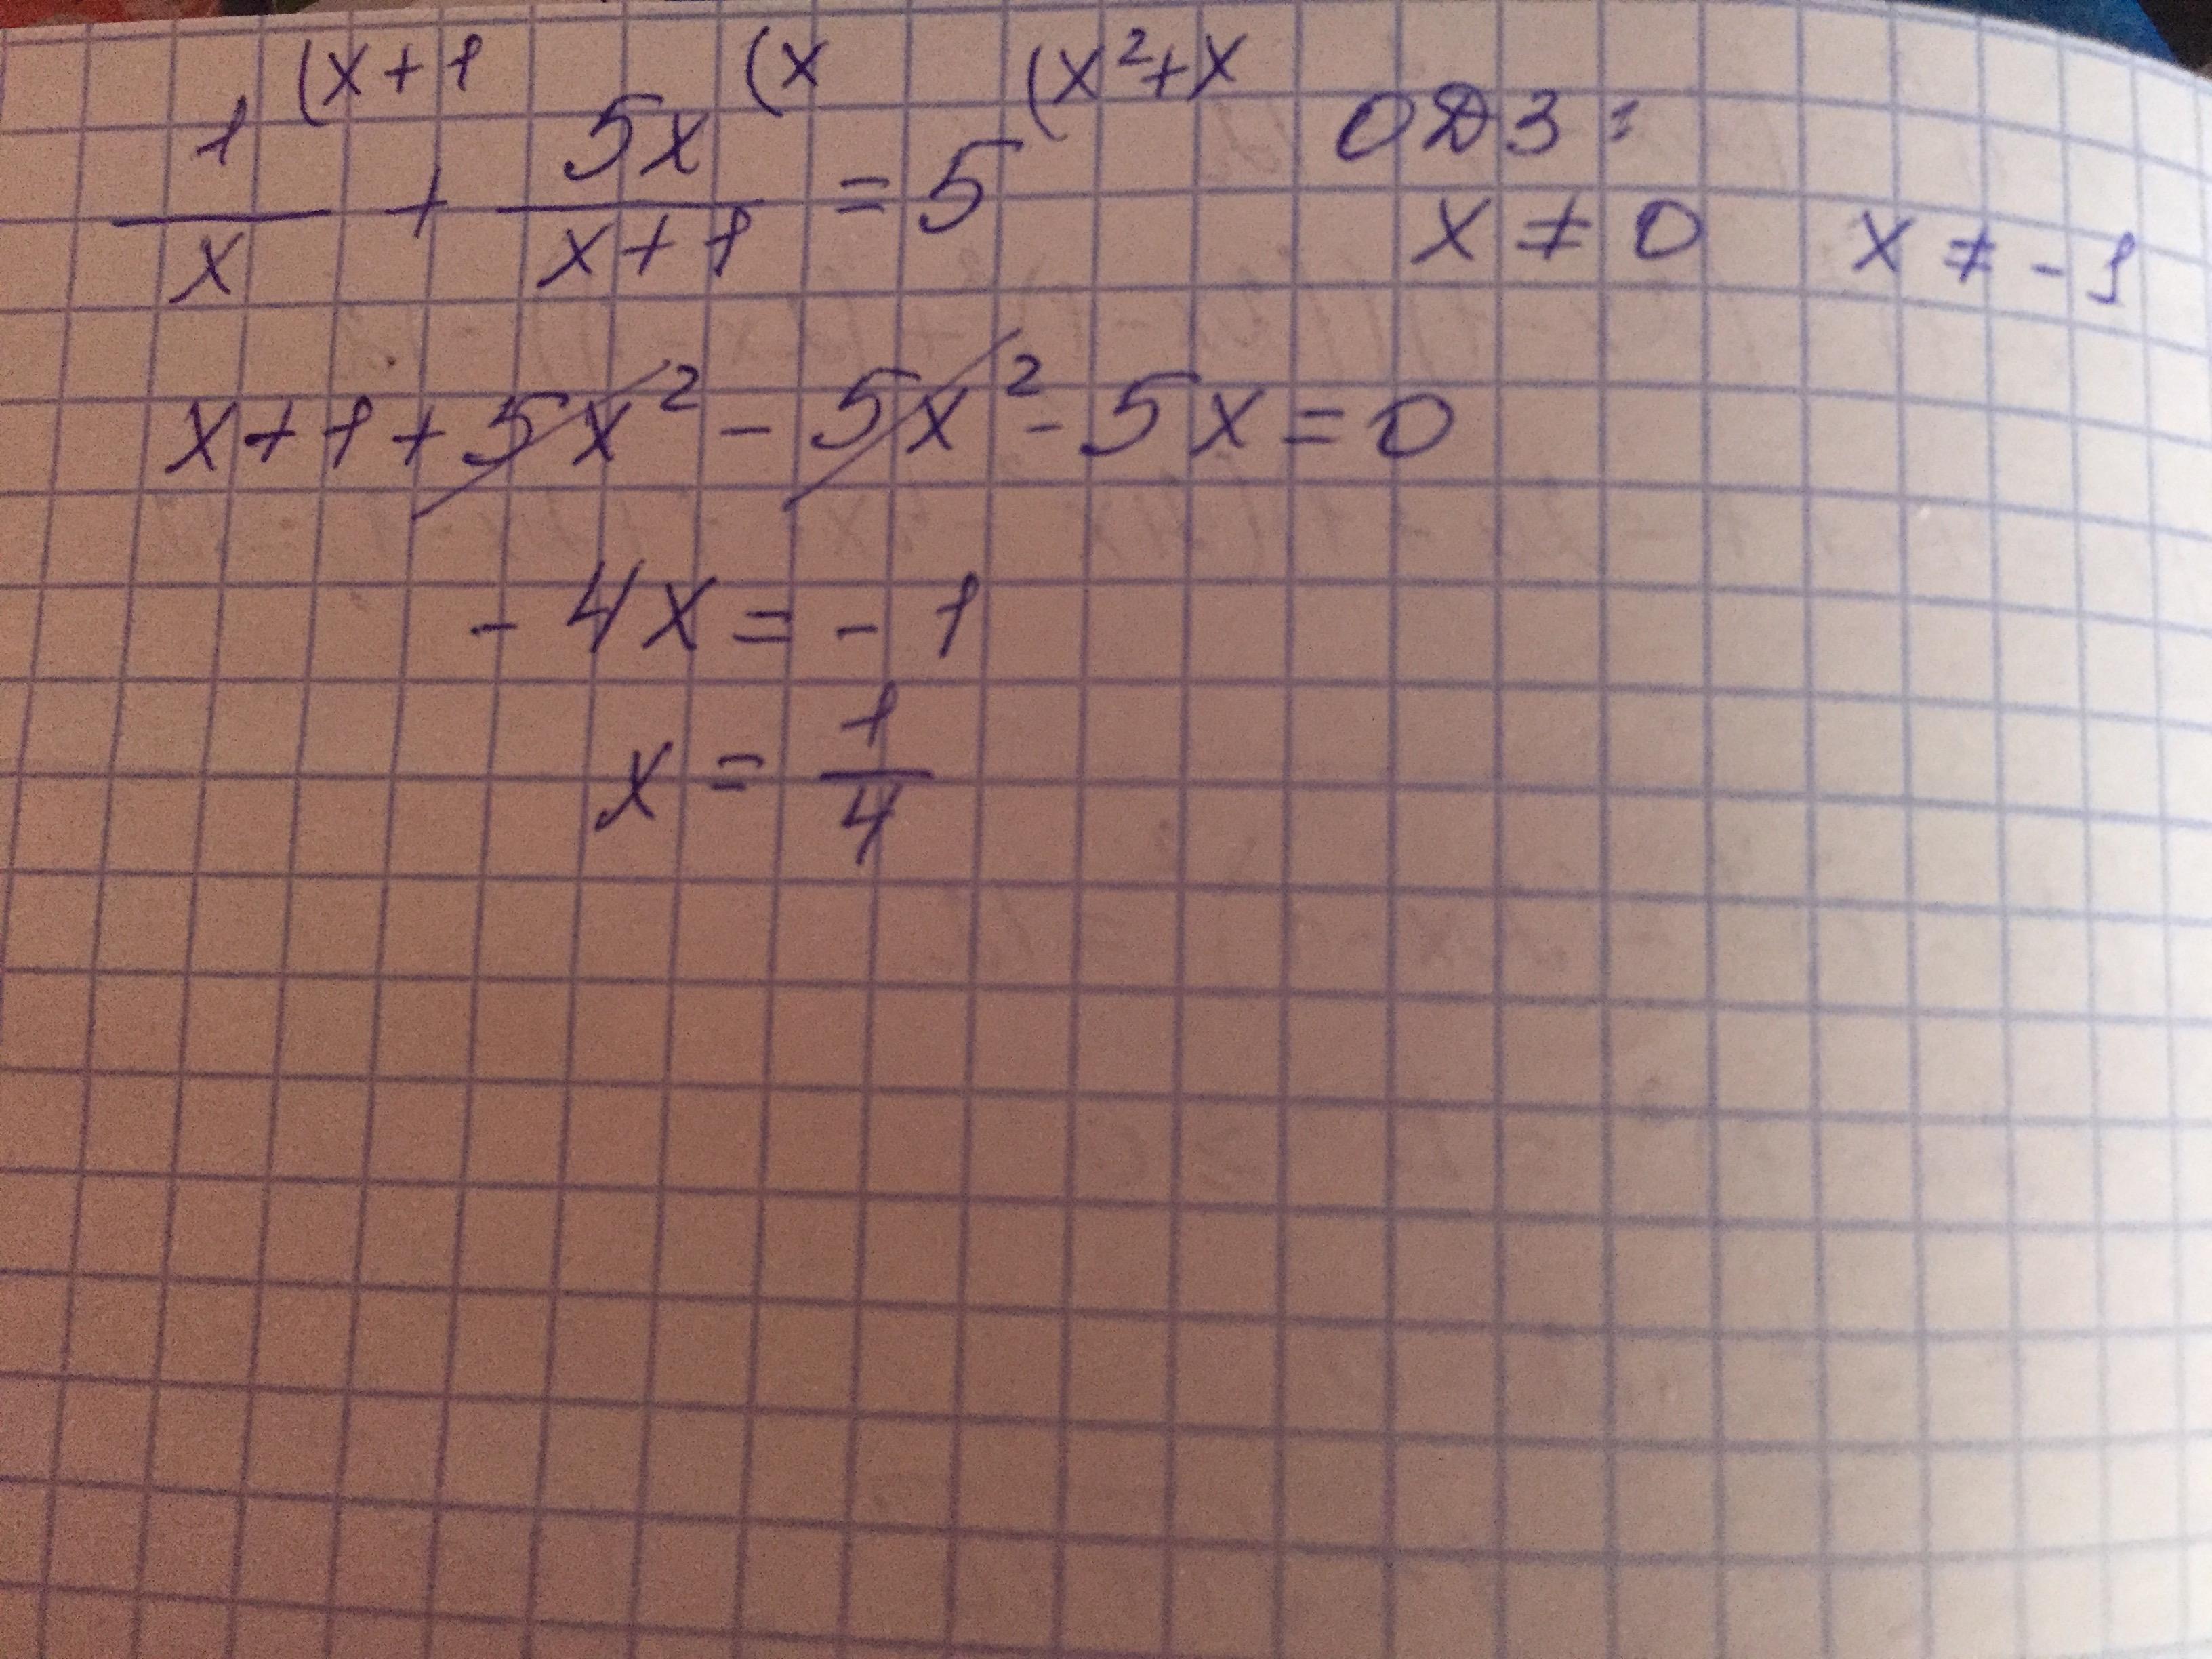 1/x (x+1 + 5x/(x+1) (x = 5 (x²+x ОДЗ:
x ≠ 0 x ≠ -1
x+1+5x² - 5x² - 5x = 0
-4x = -1
x = 1/4